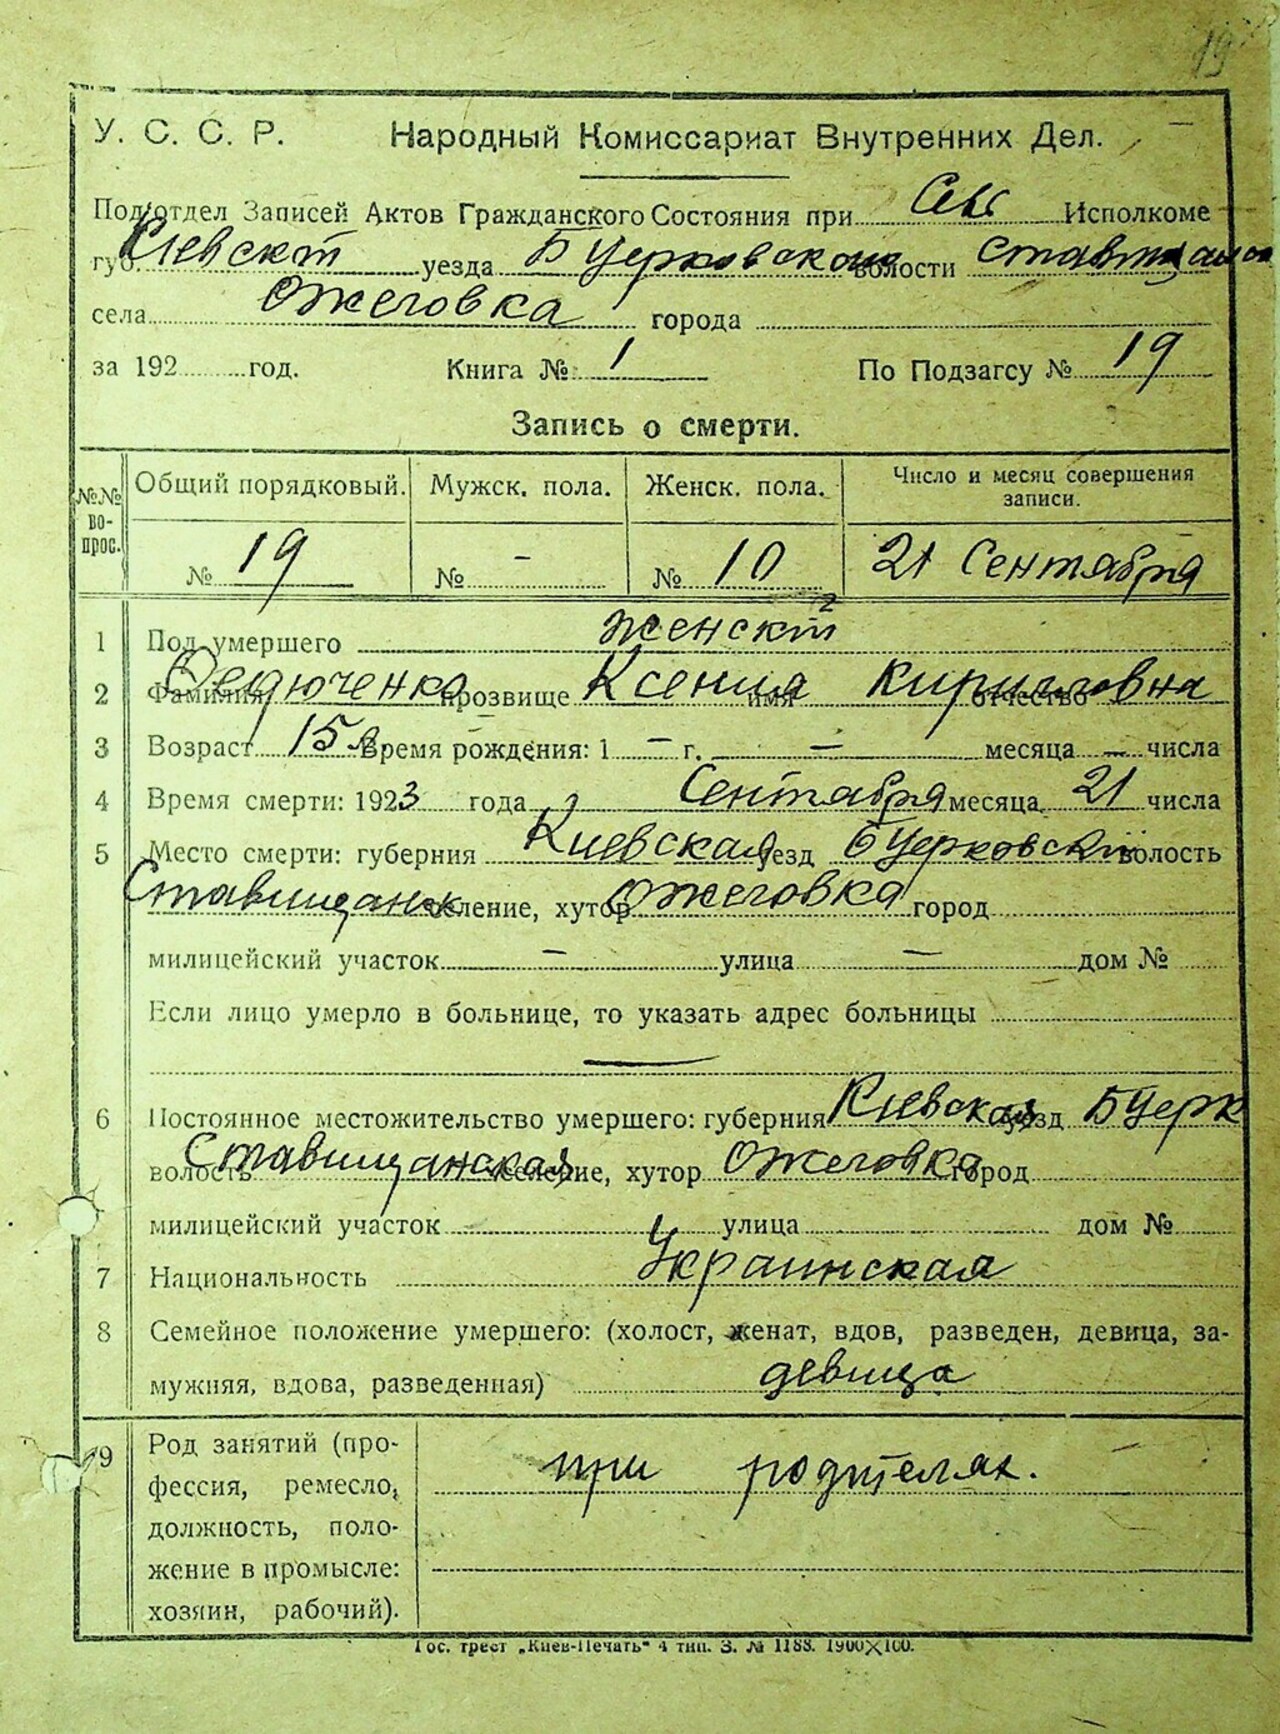 19
У. С. С. Р. Народный Комиссариат Внутренних Дел.
Под'отдел Записей Актов Гражданского Состояния при Исполкоме
губ. Киевск уезда Бцерковского волости
села Ожеговка города
за 192 год. Книга № 1 По Подзагсу № 19
Запись о смерти.
№№ вопрос. Общий порядковый. Мужск. пола. Женск. пола. Число и месяц совершения записи.
№ 19 № - № 10 21 Сентября
1 Пол умершего
2 Фамилия прозвище Ксения имя Кирилловна отчество
3 Возраст 15 л Время рождения: 1 - г. - месяца - числа
4 Время смерти: 1923 года Сентября месяца 21 числа
5 Место смерти: губерния Киевская уезд Бцерковский волость
Ставищанск селение, хутор Ожеговка город
милицейский участок - улица - дом №
Если лицо умерло в больнице, то указать адрес больницы
—
6 Постоянное местожительство умершего: губерния Киевская уезд Бцерк
волость Ставищанская селение, хутор Ожеговка город
милицейский участок улица дом №
7 Национальность Украинская
8 Семейное положение умершего: (холост, женат, вдов, разведен, девица, за-
мужняя, вдова, разведенная) девица
9 Род занятий (про-
фессия, ремесло, при родителях.
должность, поло-
жение в промысле:
хозяин, рабочий).
Гос. трест „Киев-Печать" 4 тип. З. № 1188. 1900×100.